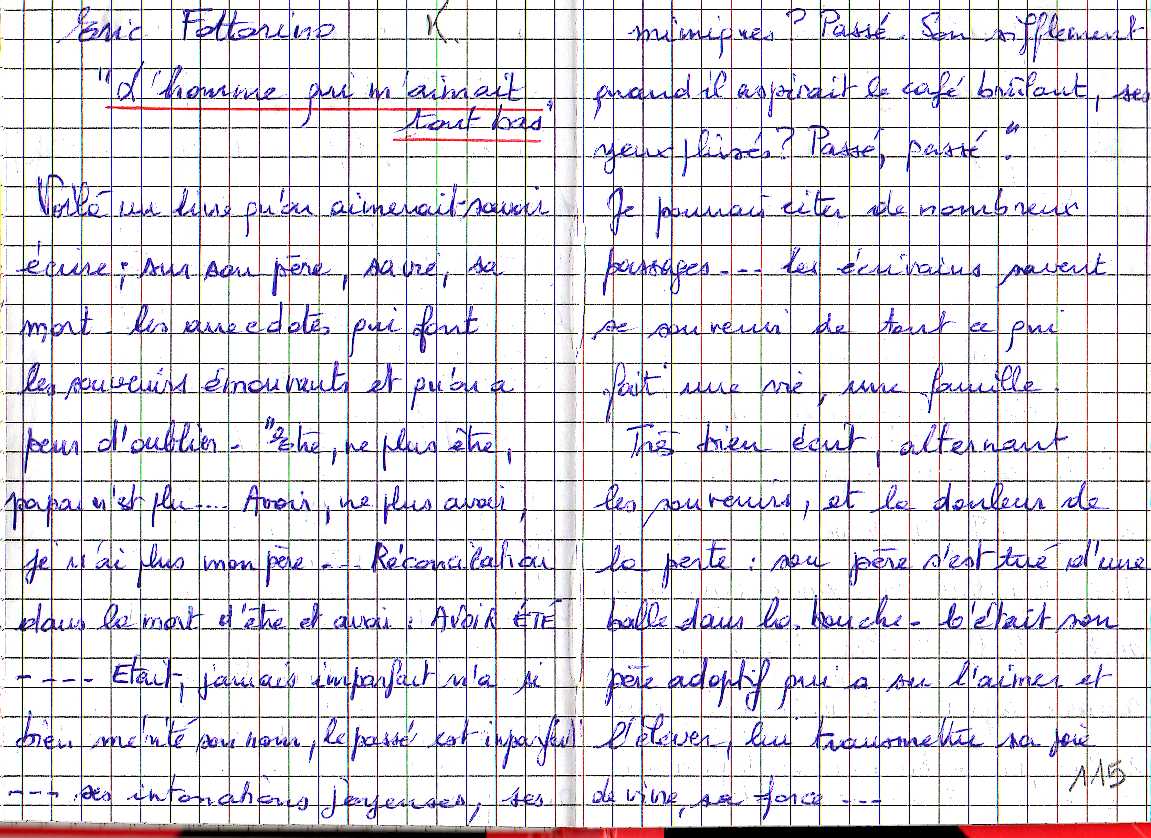 Eric Fottorino K.
"L'homme qui m'aimait
tout bas"
Voilà un livre qu'on aimerait savoir
écrire ; sur son père, sa vie, sa
mort - les anecdotes qui font
les souvenirs émouvants et qu'on a
peur d'oublier - "Etre, ne plus être,
papa n'est plu.... Avoir, ne plus avoir,
je n'ai plus mon père --- Réconciliation
dans la mort d'être et avoir : AVOIR ÉTÉ
---- Etait, jamais imparfait n'a si
bien mérité son nom, le passé est imparfait
--- ses intonations joyeuses, ses
mimiques ? Passé. Son sifflement
quand il aspirait le café brûlant, ses
yeux plissés ? Passé, passé".
Je pourrais citer de nombreux
passages --- les écrivains savent
se souvenir de tout ce qui
fait une vie, une famille.
Très bien écrit, alternant
les souvenirs, et la douleur de
la perte : son père s'est tué d'une
balle dans la bouche - C'était son
père adoptif qui a su l'aimer et
l'élever, lui transmettre sa joie
de vivre, sa force ---
115